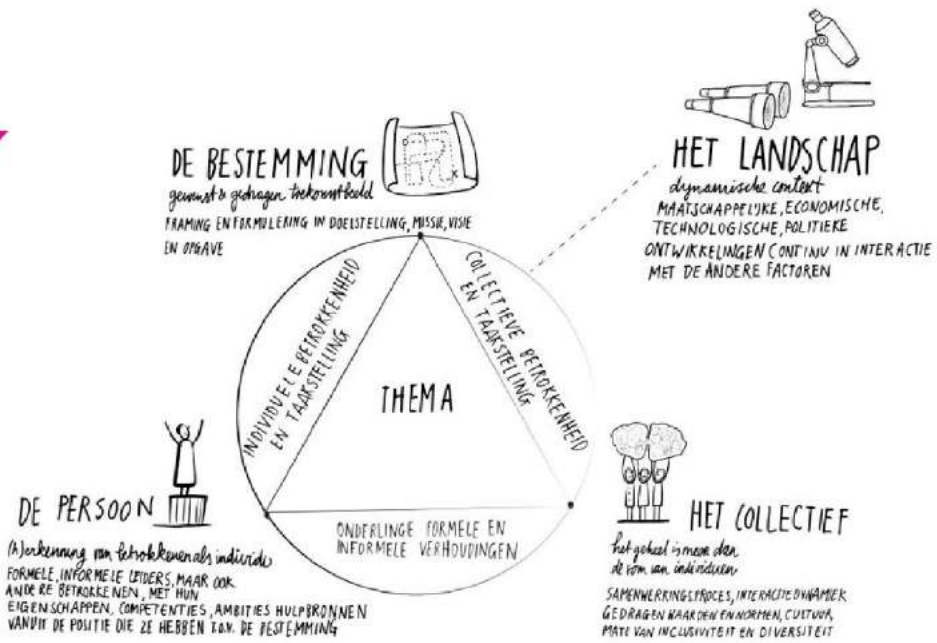 DE BESTEMMING
gewenst & gedragen toekomstbeeld
FRAMING EN FORMULERING IN DOELSTELLING, MISSIE, VISIE
EN OPGAVE
HET LANDSCHAP
dynamische context
MAATSCHAPPELIJKE, ECONOMISCHE,
TECHNOLOGISCHE, POLITIEKE
ONTWIKKELINGEN CONTINU IN INTERACTIE
MET DE ANDERE FACTOREN
INDIVIDUELE BETROKKENHEID
EN TAAKSTELLING
COLLECTIEVE BETROKKENHEID
EN TAAKSTELLING
THEMA
ONDERLINGE FORMELE EN
INFORMELE VERHOUDINGEN
DE PERSOON
(h)erkenning van betrokkenen als individu
FORMELE, INFORMELE LEIDERS, MAAR OOK
ANDERE BETROKKENEN, MET HUN
EIGENSCHAPPEN, COMPETENTIES, AMBITIES HULPBRONNEN
VANUIT DE POSITIE DIE ZE HEBBEN T.O.V. DE BESTEMMING
HET COLLECTIEF
het geheel is meer dan
de som van individuen
SAMENWERKINGSPROCES, INTERACTIEDYNAMIEK
GEDRAGEN WAARDEN EN NORMEN, CULTUUR,
MATE VAN INCLUSIVITEIT EN DIVERSITEIT